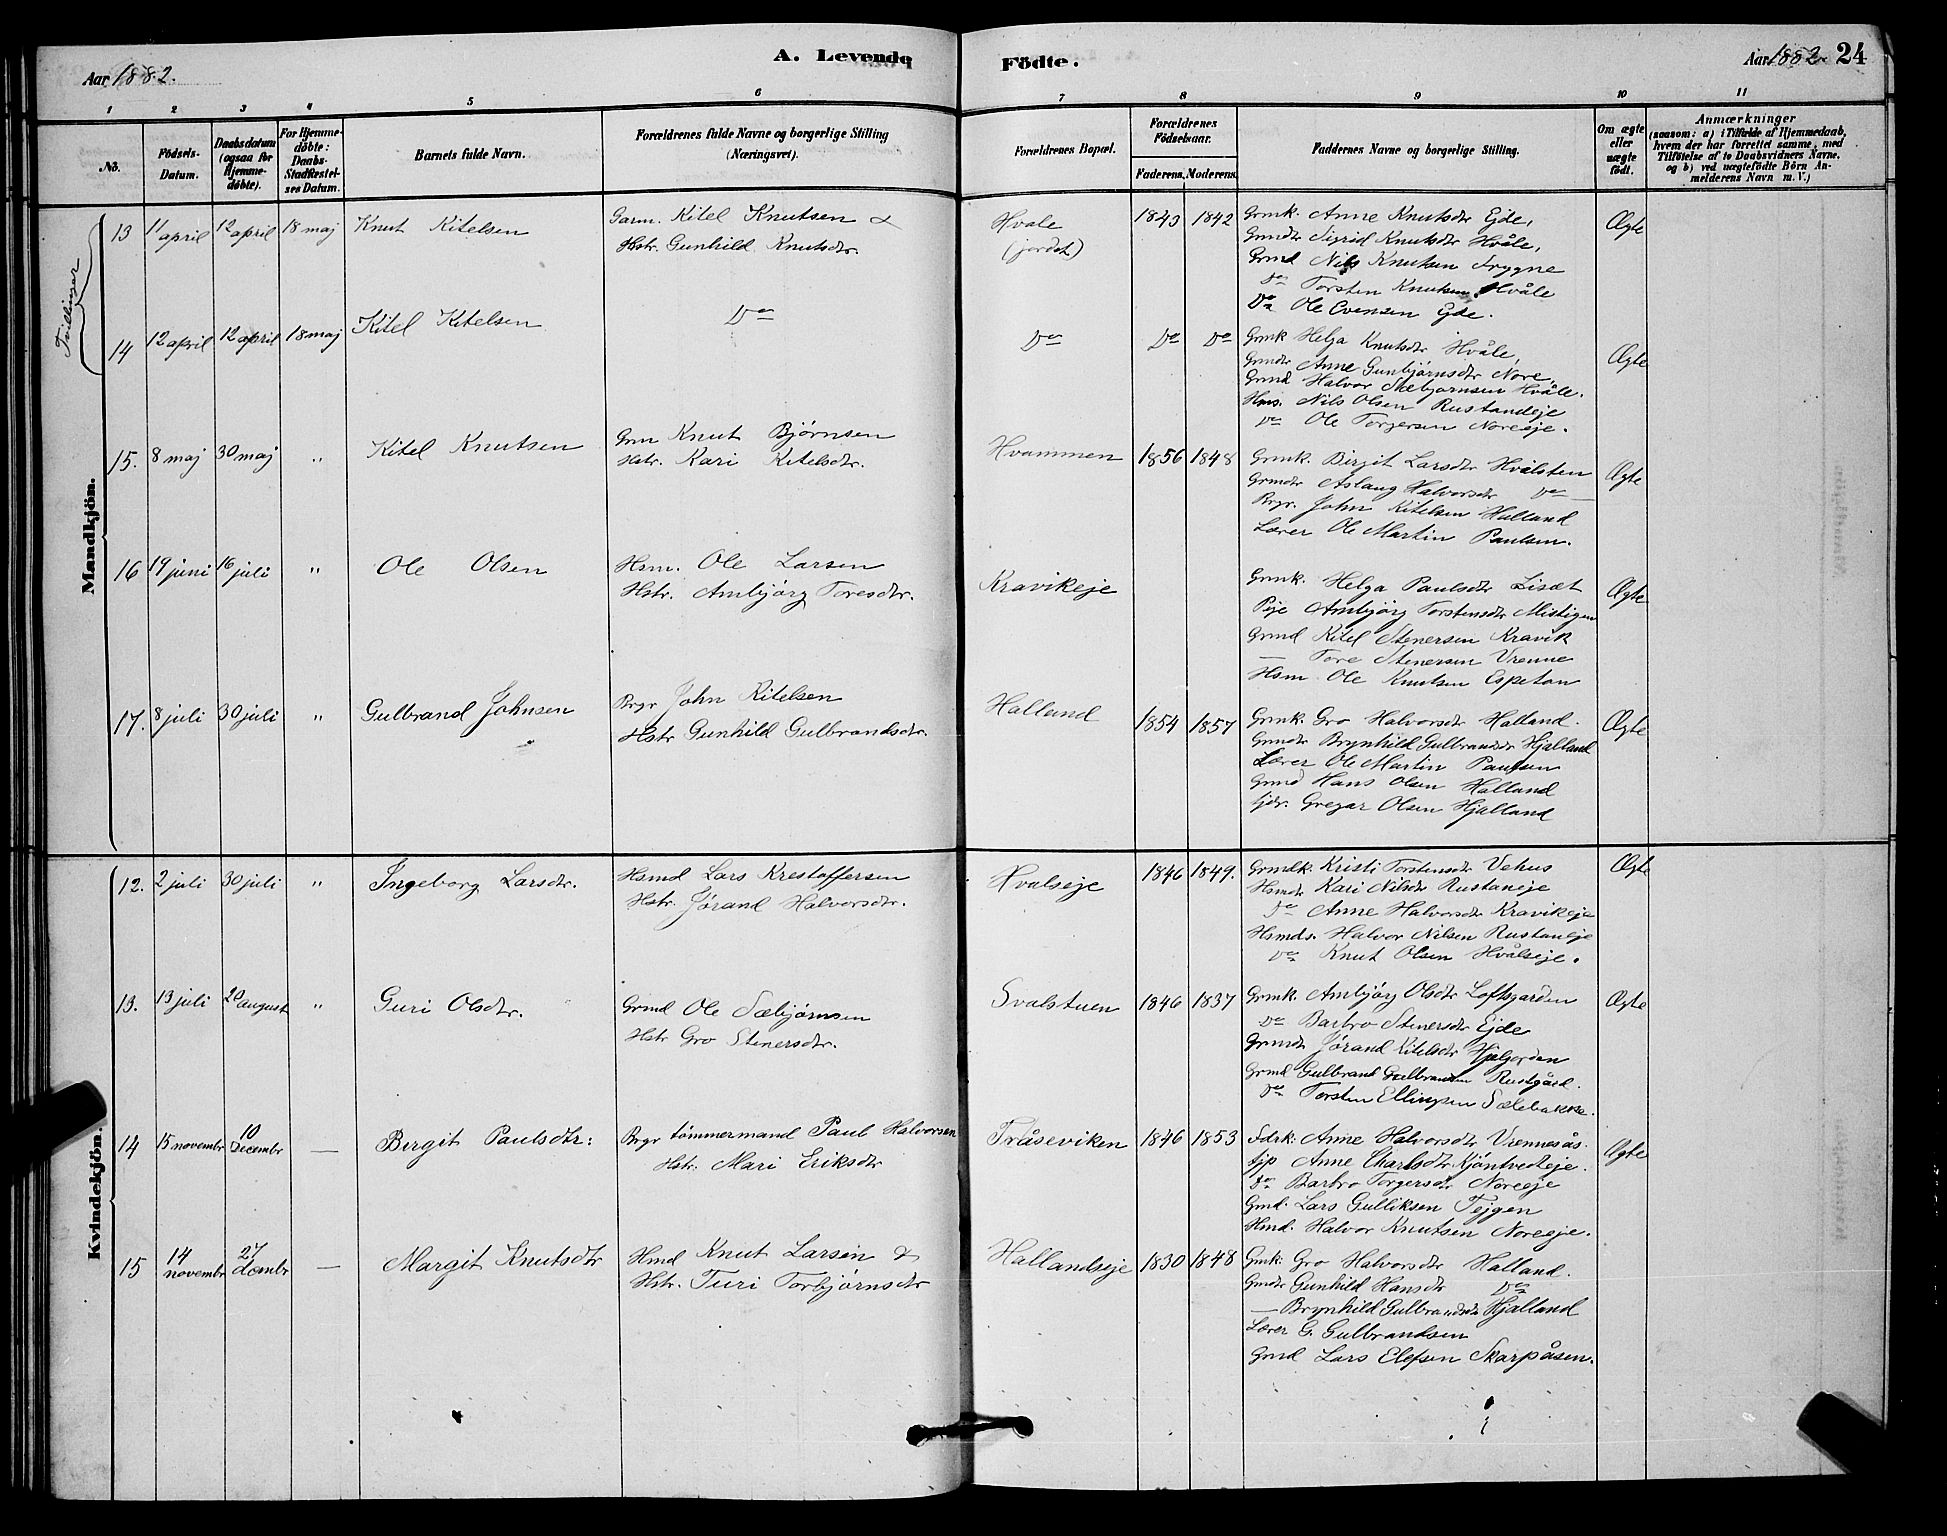 Aar 1882.
A. Levende Födte.
Aar 1882 24
1 2 3 4 5 6 7 8 9 10 11
No.
Födsels-Datum.
Daabsdatum (ogsaa for Hjemmedøbte).
For Hjemmedøbte: Daabs-Stadfæstelses Datum.
Barnets fulde Navn.
Forældrenes fulde Navne og borgerlige Stilling (Næringsvei).
Forældrenes Bopæl.
Forældrenes Födselsaar.
Faderens. Moderens.
Faddernes Navne og borgerlige Stilling.
Om ægte eller uægte födt.
Anmærkninger
(saasom: a) i Tilfælde af Hjemmedaab,
hvem der har forrettet samme, med
Tilföielse af to Daabsvidners Navne,
og b) ved uægtefödte Börn An-
melderens Navn m. V.)
Mandkjön.
Tvillinger
13 11 april 12 april 18 maj Knut Kitelsen
Garm. Kitel Knutsen &
Hstr. Gunhild Knutsdtr.
Hvale
(jordet)
1843 1842
Grmk. Anne Knutsdtr Ejde,
Grmdtr Sigrid Knutsdtr Hvåle,
Grmd Nils Knutsen Frygne
Do Torsten Knutsen Hvåle
Do Ole Evensen Ejde.
Ægte
14 12 april 12 april 18 maj Kitel Kitelsen
Do
Do
Do Do
Grmk Helga Knutsdtr Hvåle,
Grmdtr Anne Gunbjørnsdtr Nore,
Grmd Halvor Sæbjørnsen Hvåle.
Hms. Nils Olsen Rustandeje
Do Ole Torgersen Noreeje.
Ægte
15. 8 maj 30 maj " Kitel Knutsen
Grm Knut Bjørnsen
Hstr. Kari Kitelsdtr.
Hvammen
1856 1848
Grmk. Birgit Larsdtr Hvålsten
Grmdtr Aslaug Halvorsdtr Do
Brgr. John Kitelsen Halland
Lærer Ole Martin Paulsen.
Ægte
16 19 juni 16 juli " Ole Olsen
Hsm. Ole Larsen
Hstr. Ambjørg Toresdtr.
Kravikeje
Grmk. Helga Paulsdtr Lisæt
Pige Ambjörg Torstensdtr Mistigen
Grmd Kitel Stenersen Kravik
— Tore Stenersen Vrenne
Hsm Ole Knutsen Espeton
Ægte
17. 8 juli 30 juli " Gulbrand Johnsen
Brgr John Kitelsen
Hstr Gunhild Gulbrandsdtr.
Halland
1854 1857
Grmk. Gro Halvorsdtr Halland.
Grmdtr Brynhild Gulbrandsdtr Hjalland
Lærer Ole Martin Paulsen
Grmd Hans Olsen Halland
Gregar Olsen Hjalland
Ægte
Kvindekjön.
12. 2 juli 30 juli " Ingeborg Larsdtr.
Hsmd Lars Krestoffersen
Hstr. Jørand Halvorsdtr.
Hvalseje
1846 1849.
Grmdk. Kristi Torstensdtr Vehus
Hsmdtr Kari Nilsdtr Rustaneje
Do Anne Halvorsdtr Kravikeje
Hsmds. Halvor Nilsen Rustaneje
Do Knut Olsen Hvålseje.
Ægte
13. 13 juli 20 august " Guri Olsdtr.
Grmd Ole Sæbjørnsen
Hstr Gro Stenersdtr.
Svalstuen
1846 1837
Grmk. Ambjörg Olsdtr Loftsgarden
Do Barbro Stenersdtr Ejde
Grmdtr Jørand Kitelsdtr Hjaljorden
Grmd Gulbrand Gulbransen Rustgård.
Do Torsten Ellingsen Sælebakke.
Ægte
14 15 novembr 10 Decembr — Birgit Paulsdtr:
Brgr tömmermand Paul Halvorsen
Hstr. Mari Eriksdtr
Tråseviken
1846 1853
Fdrk. Anne Halvorsdtr Vrennesås.
Anne Charlsdtr Kjöntvedteje.
Do Barbro Torgersdtr Noreeje
Gmd. Lars Gulliksen Tejgen
Hmd. Halvor Knutsen Noreeje.
Ægte
15 14 novembr 27 decembr — Margit Knutsdtr
Hmd Knut Larsen &
Hstr. Turi Torbjörnsdtr
Hallandseje
1830 1848
Gmk. Gro Halvorsdtr Halland.
Gmdtr Gunhild Hansdtr Do
— Brynhild Gulbrandsdtr Hjalland
Lærer G. Gulbrandsen
Gmd Lars Elefsen Skarpåsen.